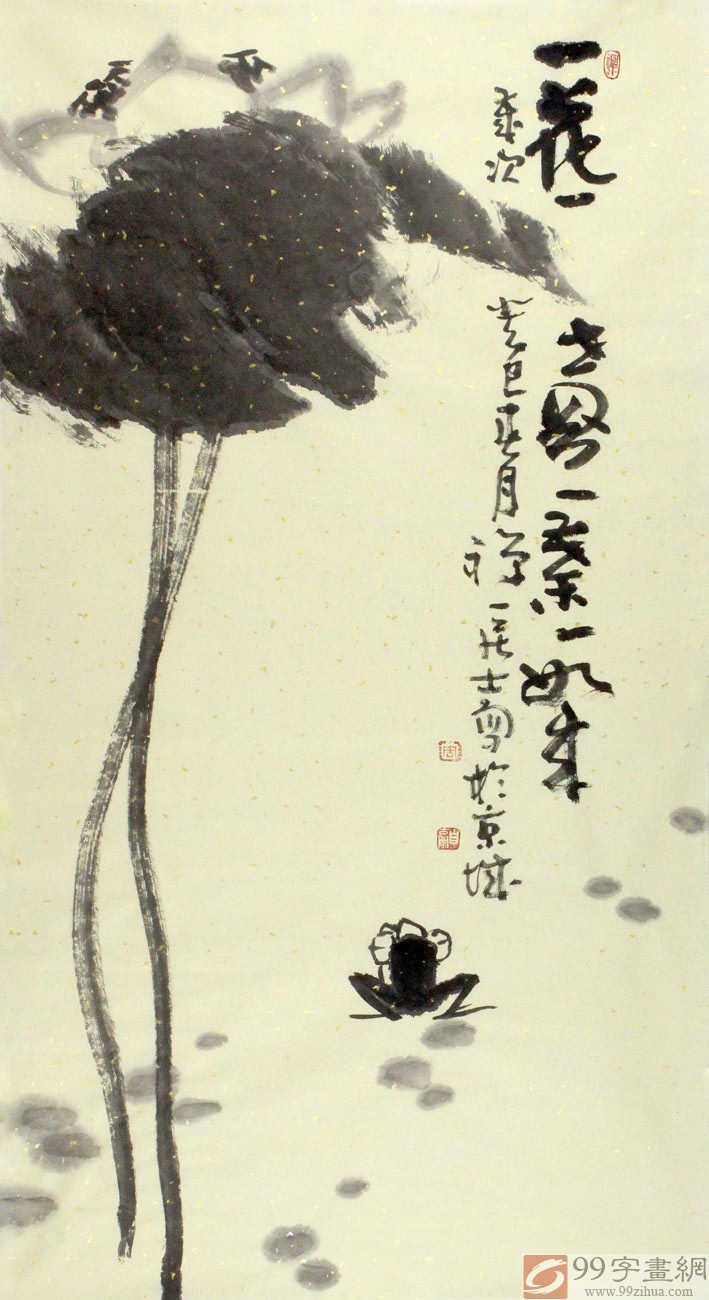 一花一世界一葉一如來
歲次癸巳春月禪一居士寫於京城
99字畫網
www.99zihua.com